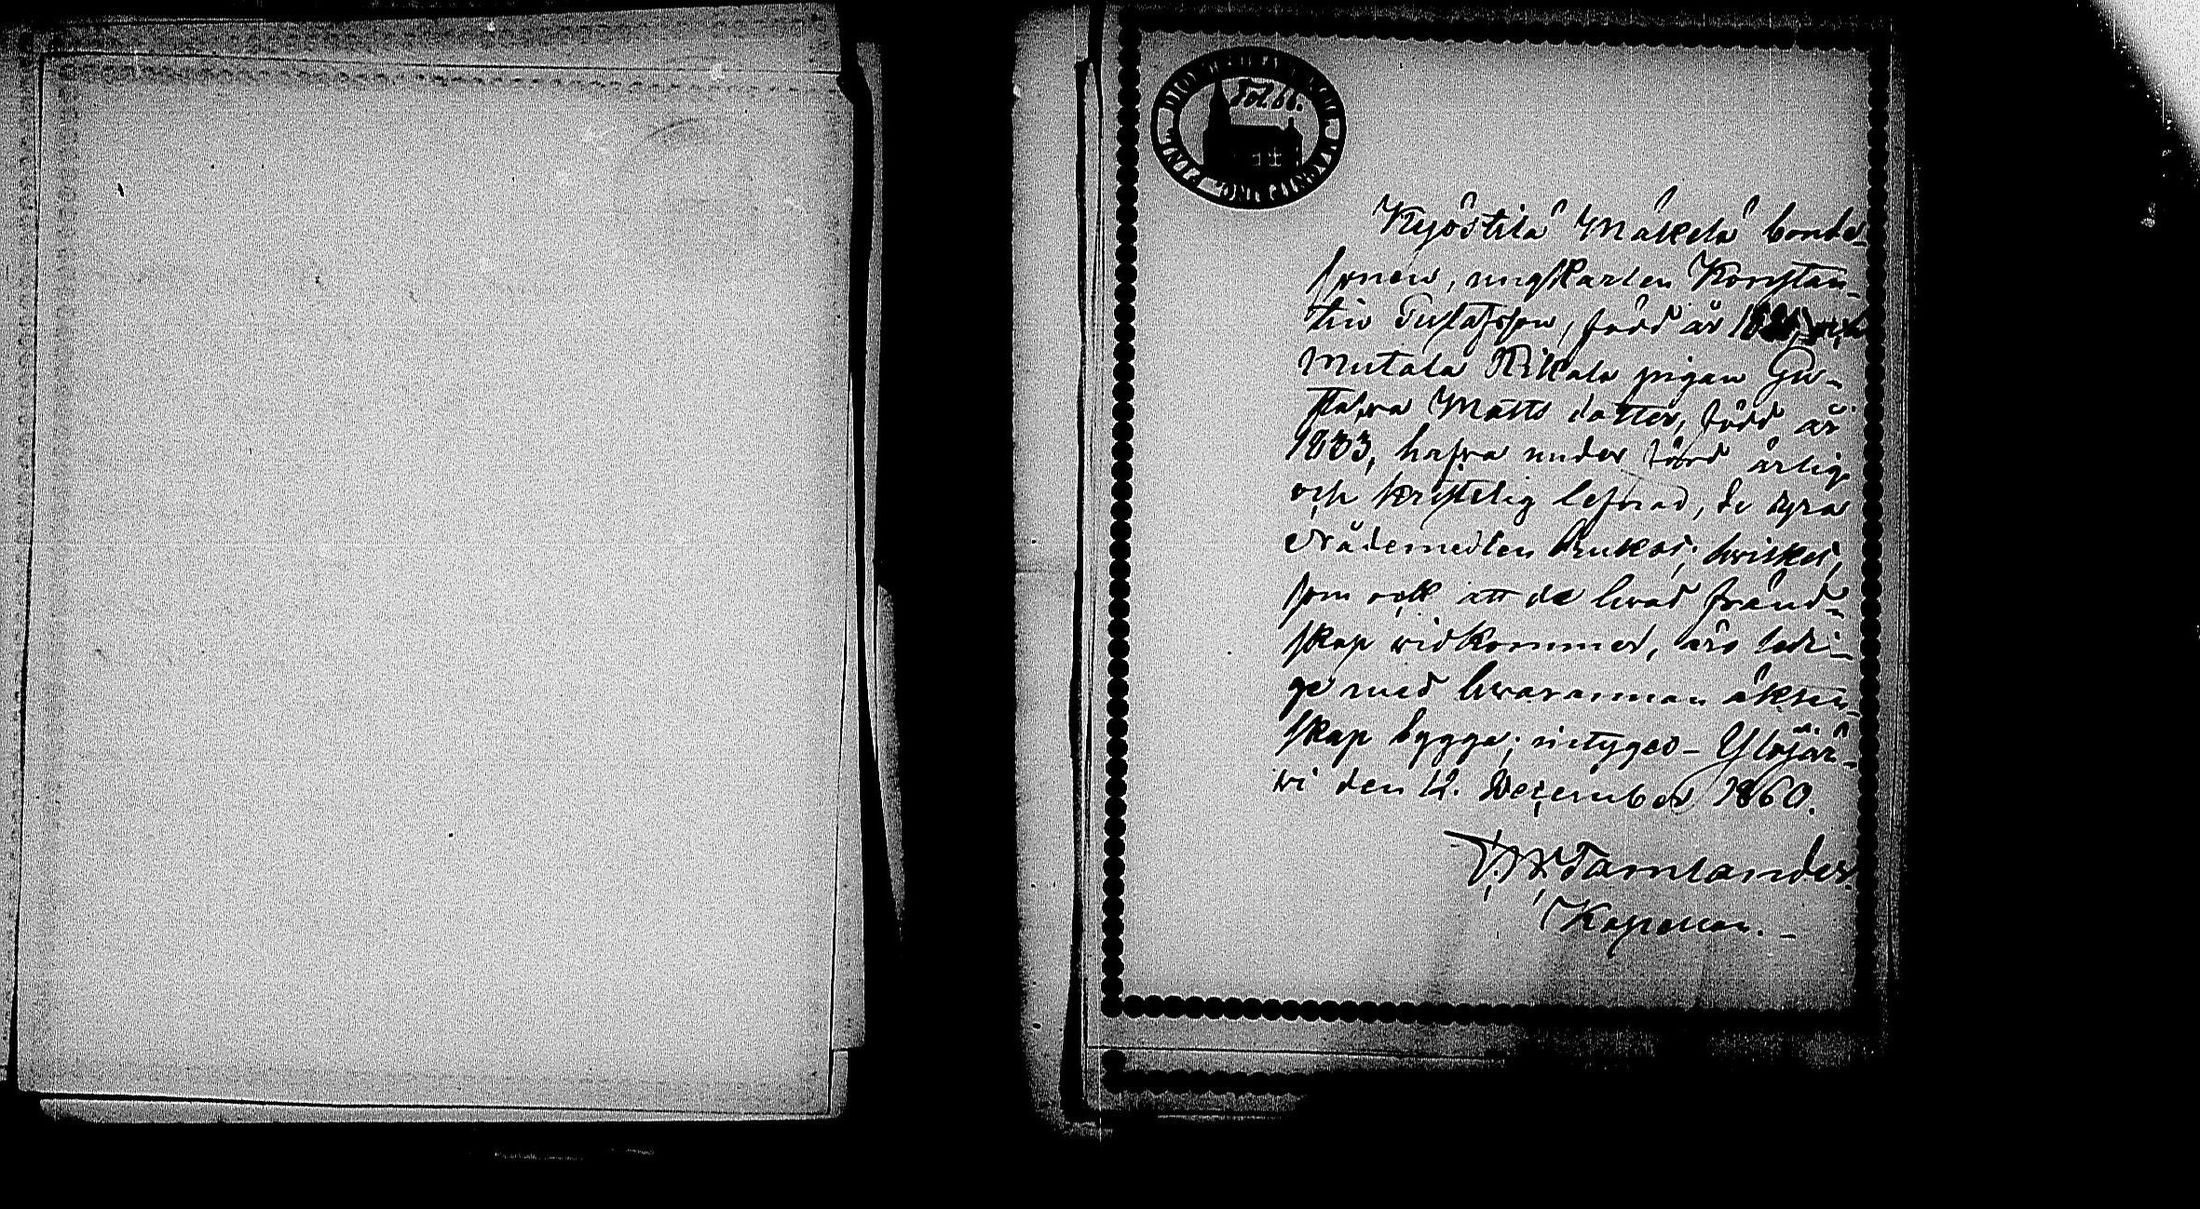 Fol. 66.
Kyöstilä Mäkelä bonde-
sonen, ungkarlen Konstan-
tin Gustafsson, född år och
Mutala Rikala pigan Gu-
stafva Matts dotter, född år
1833, hafva under förd ärlig
och kristelig lefnad, de dyra
Nådemedlen brukat; hwilket,
som ock att de hwad fränd-
skap widkommer, äro ledi-
ge med hwarannan äkten-
skap bygga; intygas – Ylöjär-
wi den 12. December 1860.
Tamlander.
Kapellan. –